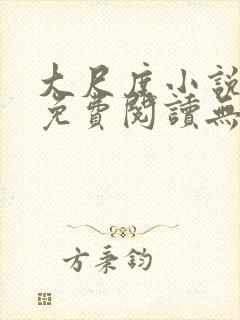 大尺度小說
免費閱讀無
方秉鈞